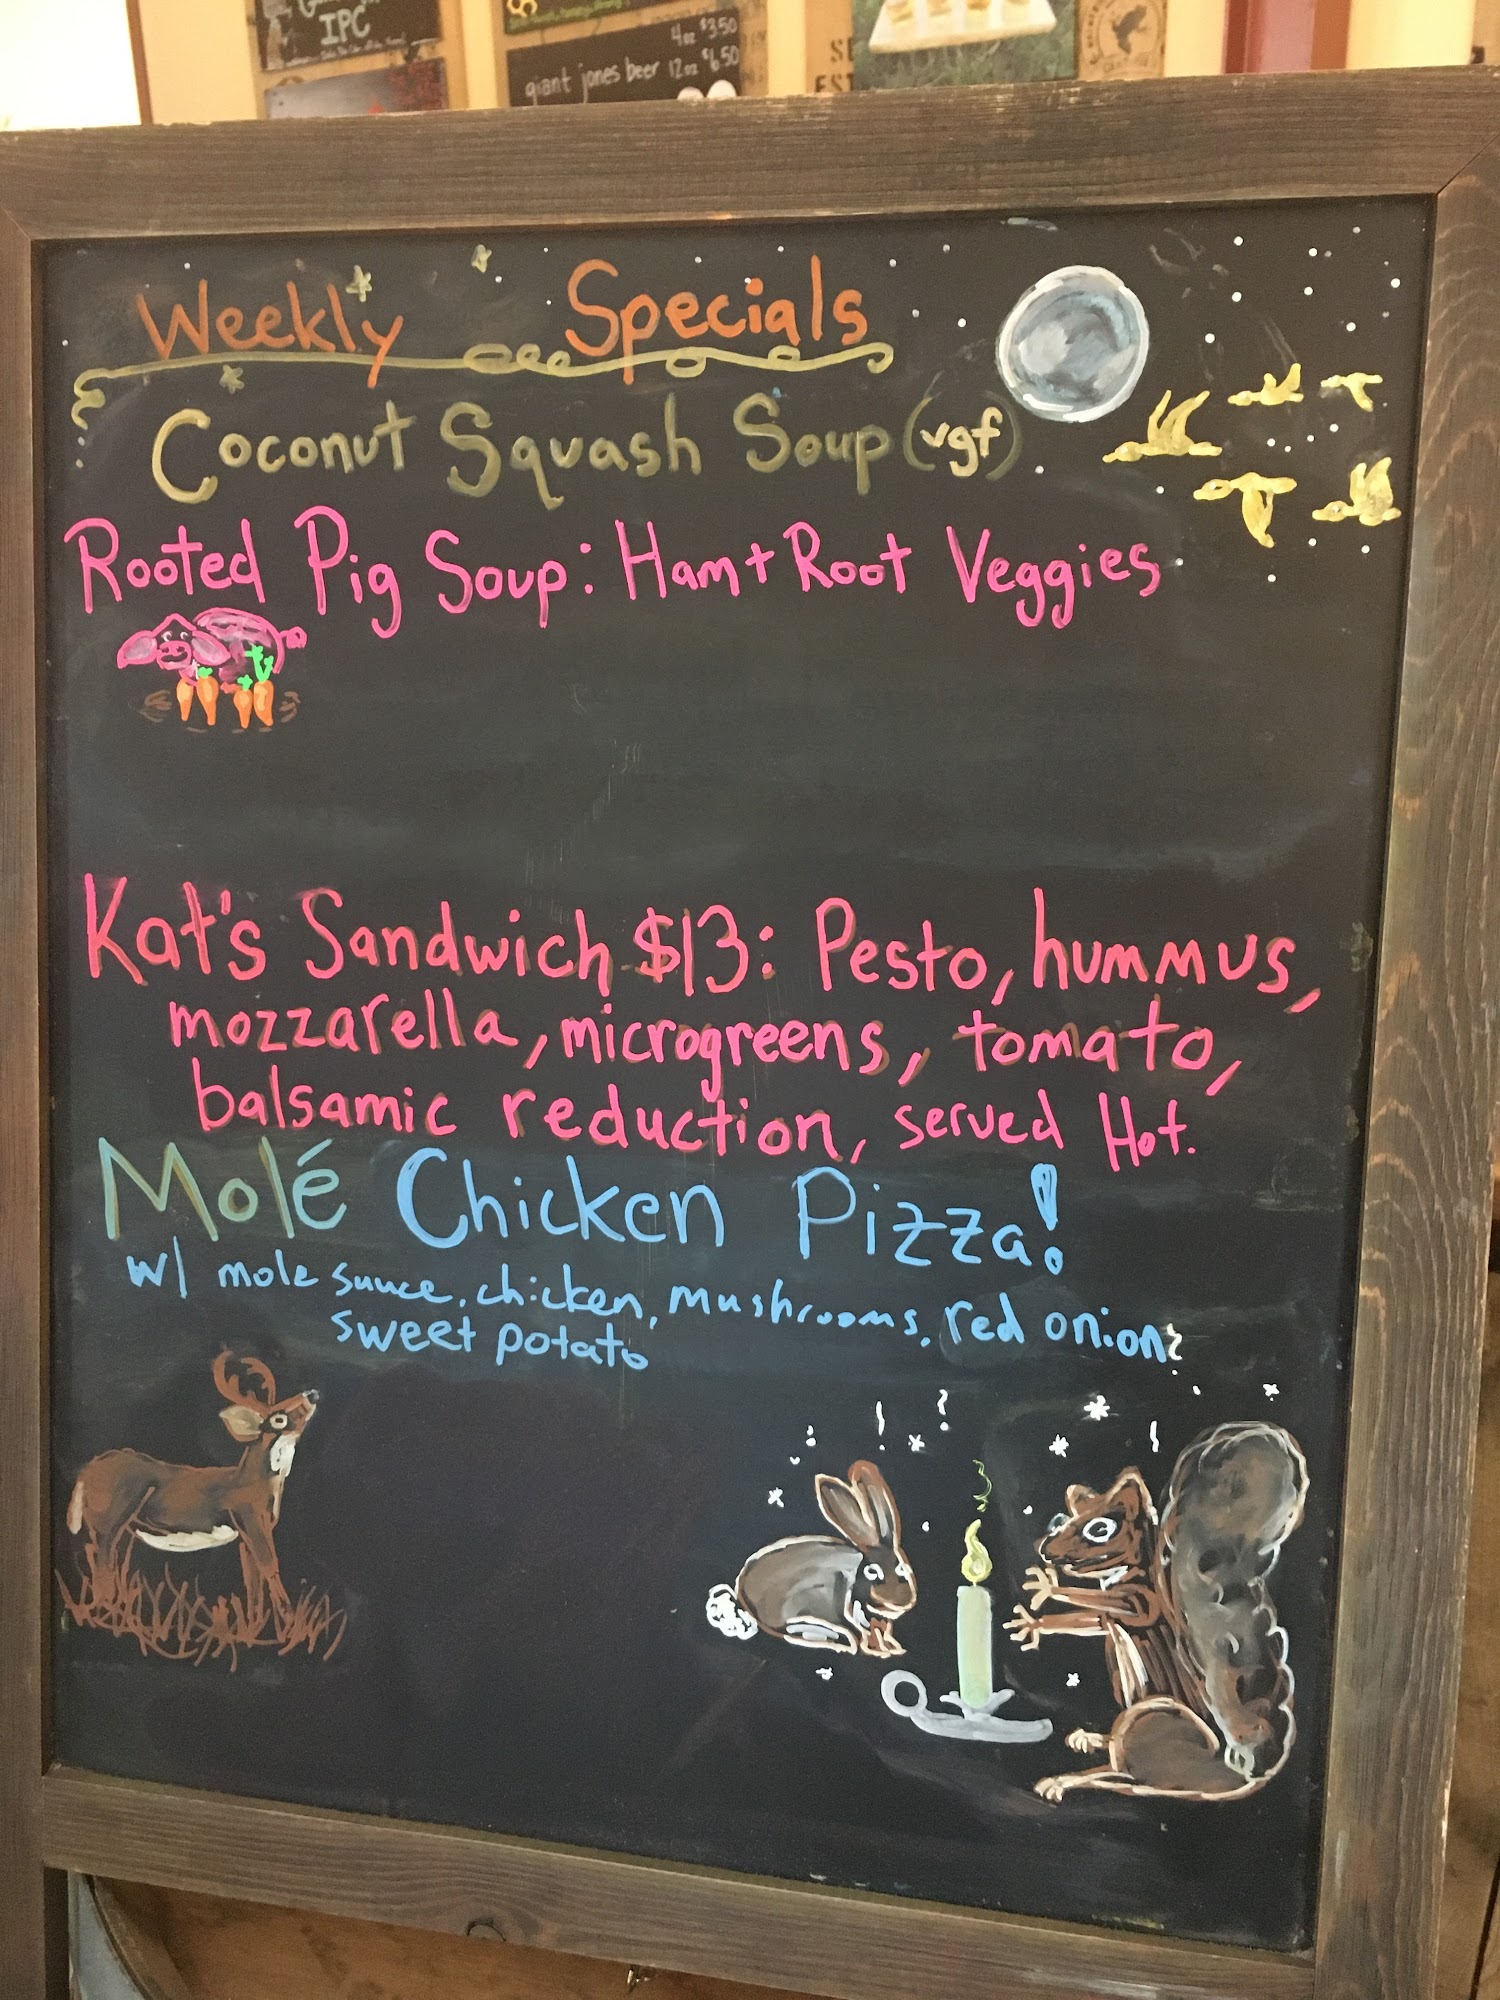 IPC
4oz $3.50
giant jones beer 12oz $6.50
Weekly Specials
Coconut Squash Soup (vgf)
Rooted Pig Soup: Ham + Root Veggies
Kat's Sandwich $13: Pesto, hummus,
mozzarella, microgreens, tomato,
balsamic reduction, served Hot.
Molé Chicken Pizza!
w/ mole sauce, chicken, mushrooms, red onion,
sweet potato